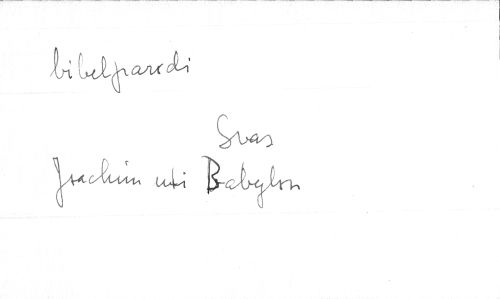 bibelparodi
Svar
Joachim uti Babylon